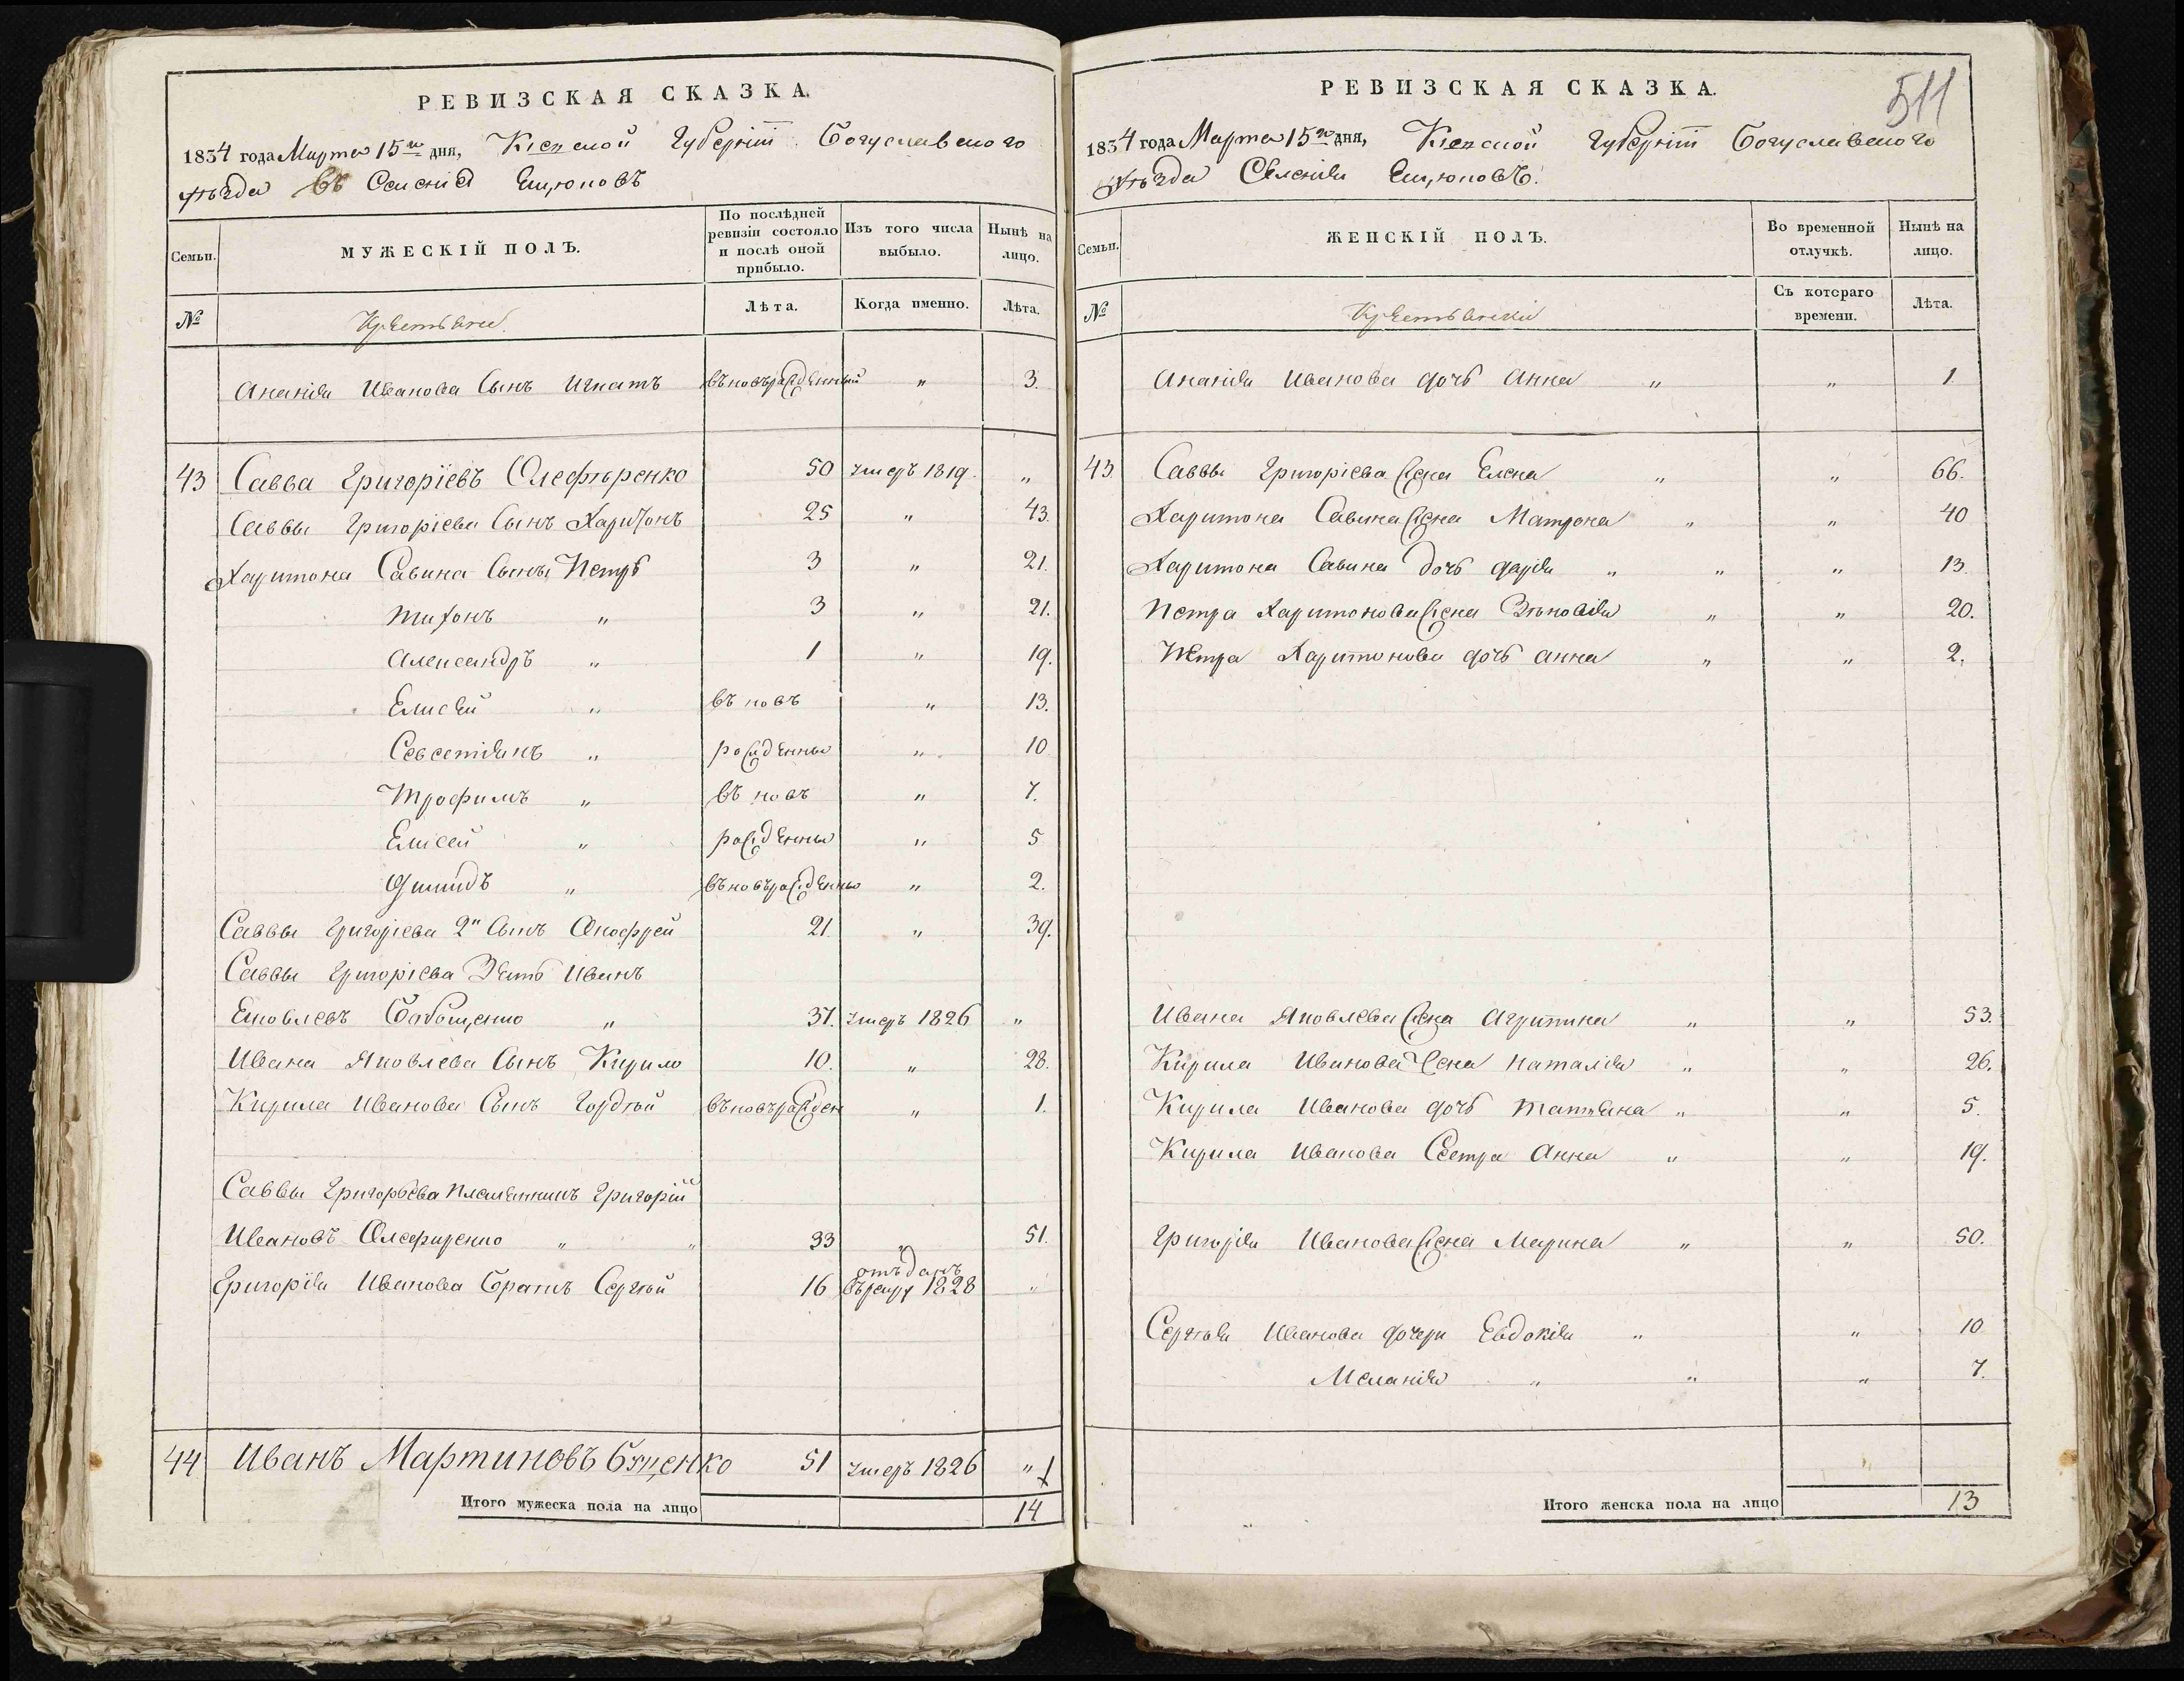 РЕВИЗСКАЯ СКАЗКА.
1834 года Марта 15го дня, Кіевской Губерніи Богуславского
уѣзда въ Селеніи Ещюковъ
Семьи. МУЖЕСКІЙ ПОЛЪ. По послѣдней ревизіи состояло и послѣ оной прибыло. Изъ того числа выбыло. Нынѣ на лицо.
№ Крестьяне Лѣта. Когда именно. Лѣта.
Ананія Иванова Сынъ Игнатъ въновърожденный " 3.
43 Савва Григоріевъ Олефѣренко 50 умеръ 1819. "
Саввы Григоріева Сынъ Харитонъ 25 " 43.
Харитона Савина Сыны Петръ 3 " 21.
Тихонъ " 3 " 21.
Александръ " 1 " 19.
Елисей " въ новъ " 13.
Севестіянъ " рожденны " 10
Трофимъ " въ новъ " 7.
Елисей " рожденны " 5
Диомидъ " въновърожденны " 2.
Саввы Григоріева 2й Сынъ Онофрей 21. " 39.
Саввы Григоріева Зять Иванъ
Яковлевъ Бабощенко " 37. умеръ 1826 "
Ивана Яковлева Сынъ Кирило 10. " 28.
Кирила Иванова Сынъ Гордѣй въновърожден " 1.
Саввы Григорьева племянникъ Григорій
Ивановъ Олефиренко " " 33 " 51.
Григорія Иванова Братъ Сергѣй 16 отъданъ въ рекру 1828 "
44 Иванъ Мартиновъ 51 умеръ 1826 "
Итого мужеска пола на лицо 14
РЕВИЗСКАЯ СКАЗКА.
511
1834 года Марта 15го дня, Кіевской Губерніи Богуславского
уѣзда Селенія Ещюковъ.
Семьи. ЖЕНСКІЙ ПОЛЪ. Во временной отлучкѣ. Нынѣ на лицо.
№ Крестьянки Съ котсраго времени. Лѣта.
Ананія Иванова дочь Анна " " 1
43 Саввы Григоріева жена Елена " " 66.
Харитона Савина жена Матрона " " 40
Харитона Савина дочь Дарія " " " 13.
Петра Харитонова жена Зѣновія " " 20.
Петра Харитонова дочь Анна " " 2.
Ивана Яковлева жена Агрипина " " 53.
Кирила Иванова Жена Наталія " " 26.
Кирила Иванова дочь Татьяна " " 5.
Кирила Иванова Сестра Анна " " 19.
Григорія Иванова жена Марина " " 50.
Сергѣя Иванова дочери Евдокія " " 10
Меланія " " " 7.
Итого женска пола на лицо 13